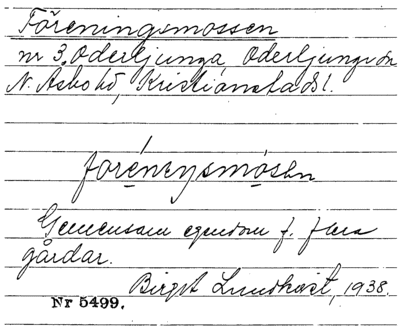 Föreningsmossen
nr 3. Oderljunga, Oderljunga sn
N. Åsbo hd, Kristianstads l.
Gemensam egendom f. flera
gårdar.
Birgit Lundkvist, 1938.
Nr 5499.